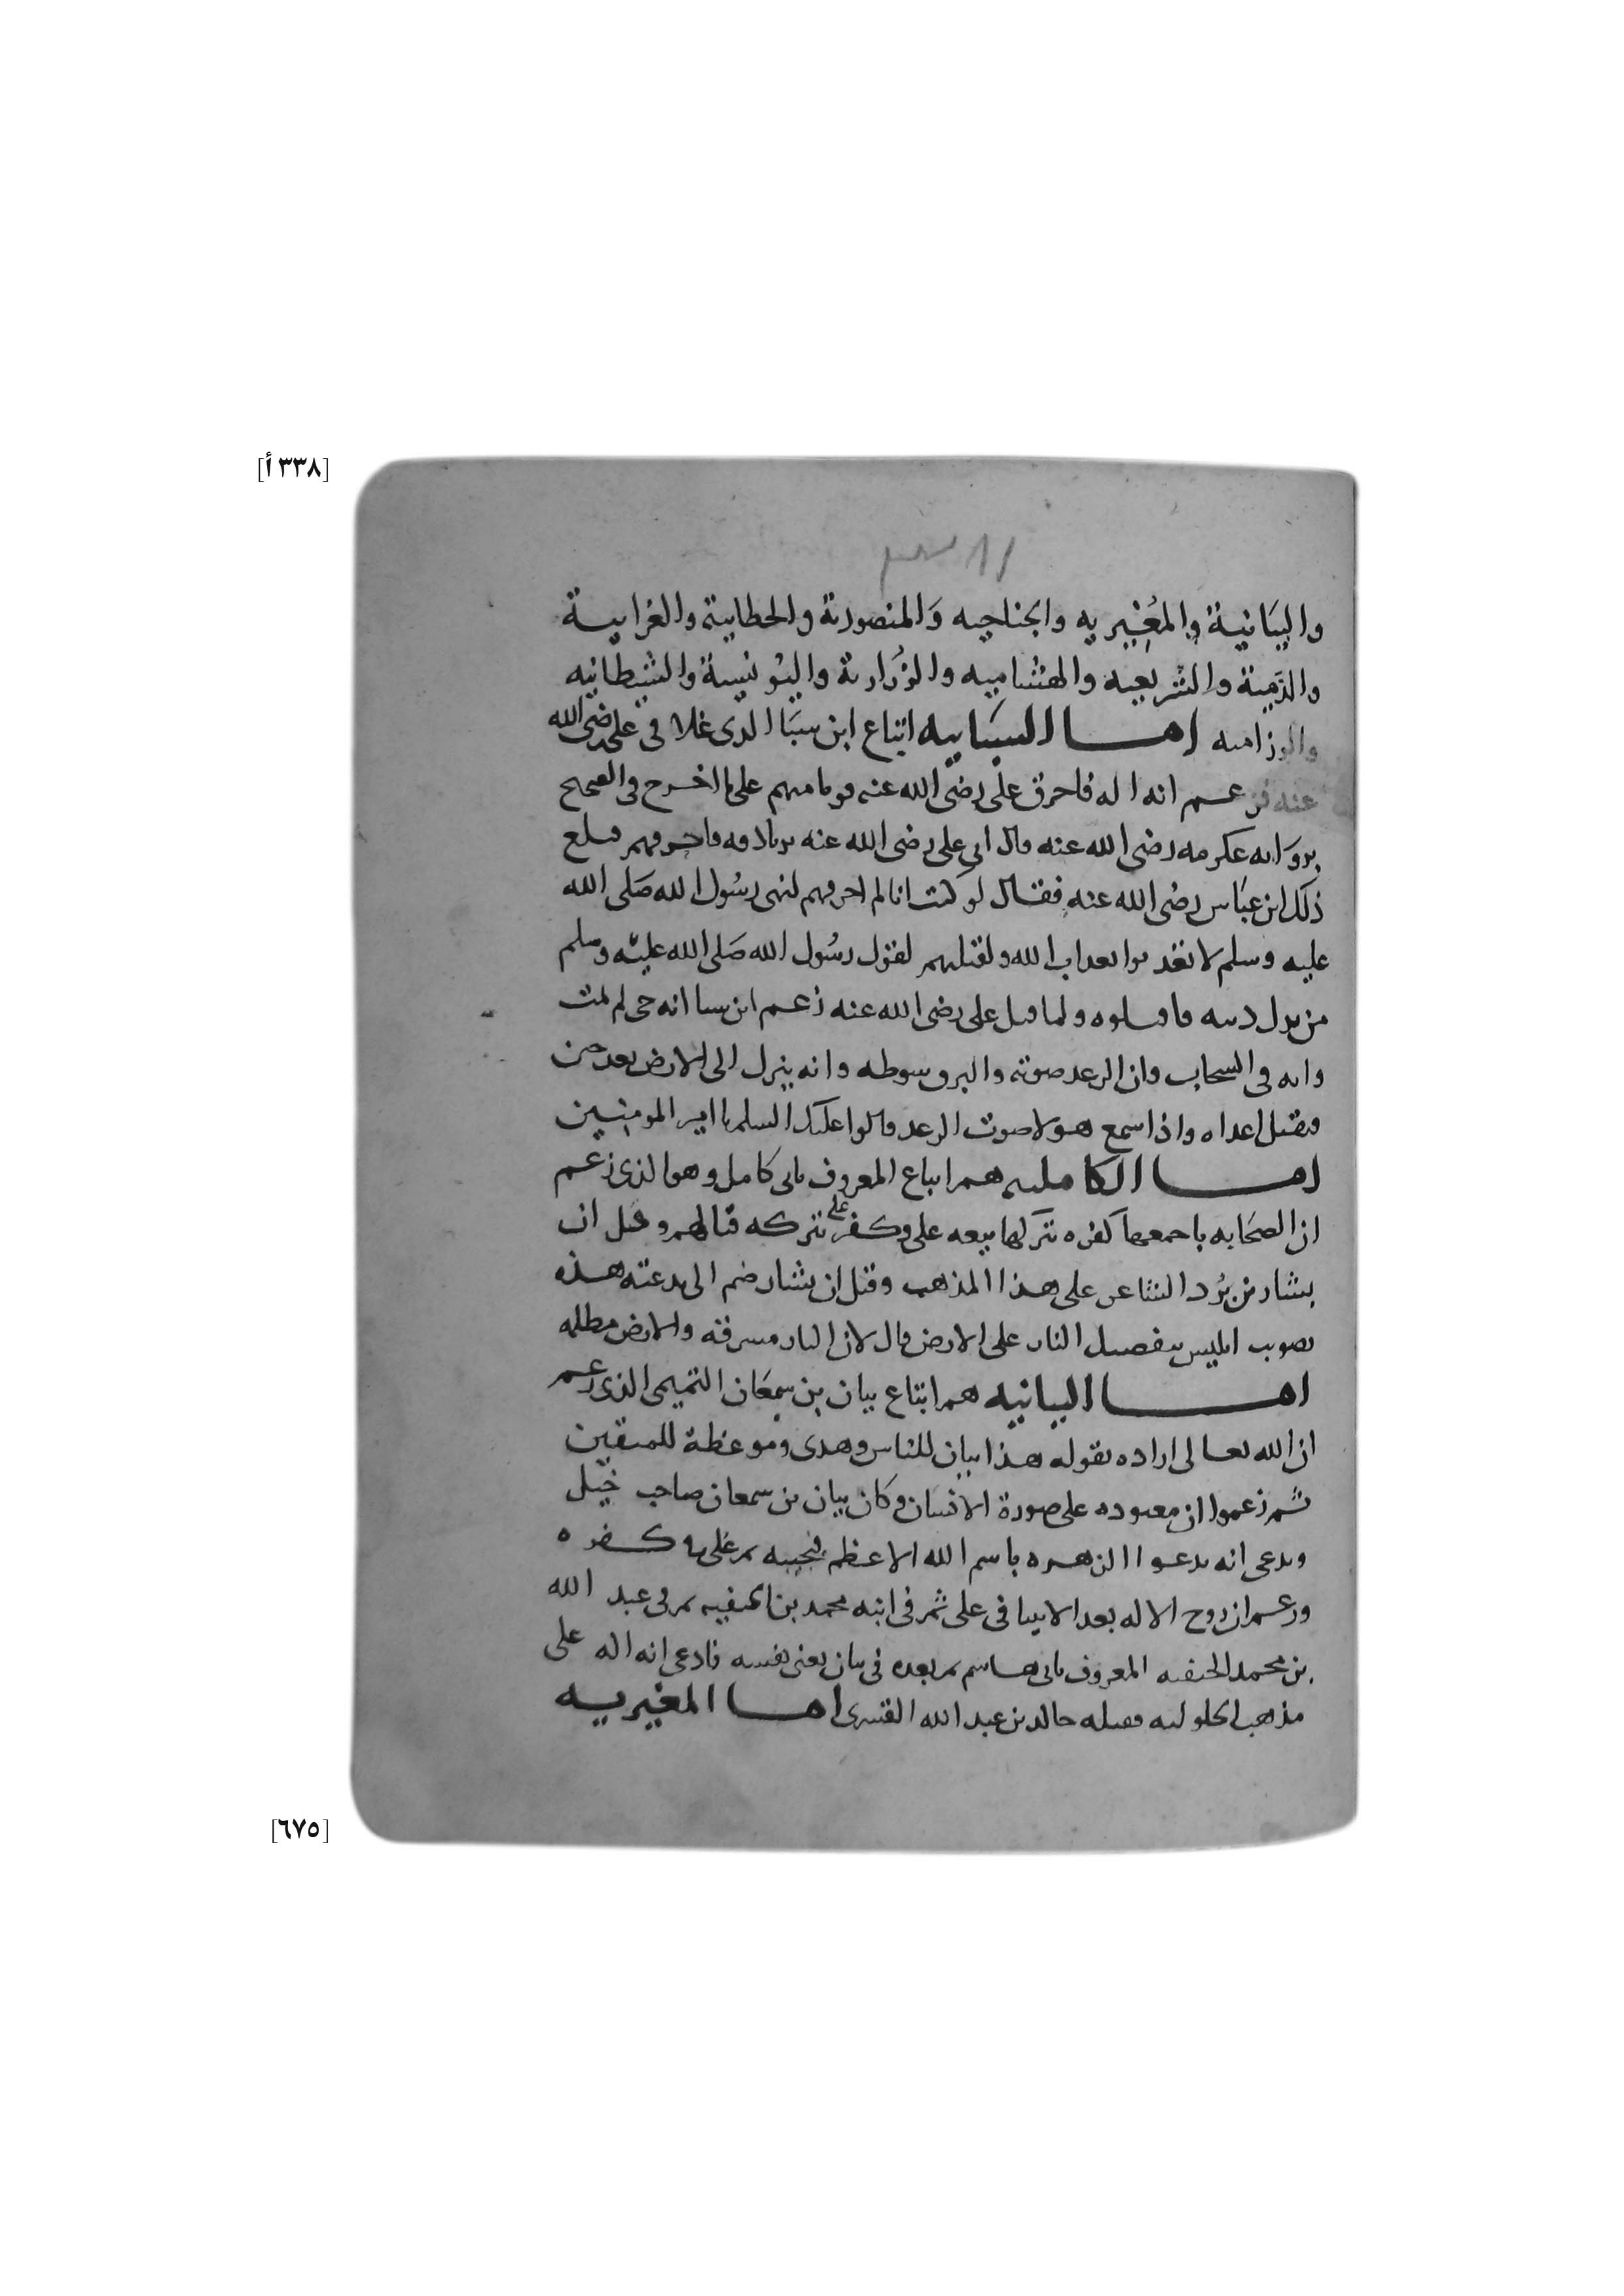 [٣٣٨ أ]
والبيانية والمغيريه والجناحيه والمنصورية والخطابية والغرابية
والذمية والشريعيه والهشاميه والزرارية واليونسية والشيطانيه
والرزاميه اما السبايه اتباع ابن سبا الذى غلا فى على رضى الله
عنه فزعم انه اله فاحرق على رضى الله عنه قوما منهم على ما اخرج فى الصحيح
بروايه عكرمه رضى الله عنه قال اتى على رضى الله عنه بزنادقه فاحرقهم فبلغ
ذلك ابن عباس رضى الله عنه فقال لو كنت انا لم احرقهم لنهى رسول الله صلى الله
عليه وسلم لا تعذبوا بعذاب الله ولقتلتهم لقول رسول الله صلى الله عليه وسلم
من بدل دينه فاقتلوه ولما قتل على رضى الله عنه زعم ابن سبا انه حى لم يمت
وانه فى السحاب وان الرعد صوته والبرق سوطه وانه ينزل الى الارض بعد حين
فيقتل اعداه واذا سمع هولا صوت الرعد قالوا عليك السلم يا امير المومنين
اما الكامليه هم اتباع المعروف بابى كامل وهو الذى زعم
ان الصحابه باجمعها كفره بتركها بيعه على وكفر على بتركه قتالهم وقيل ان
بشار بن برد الشاعر على هذا المذهب وقيل ان بشار ضم الى بدعته هذه
تصويب ابليس بتفضيل النار على الارض قال لان النار مشرقه والارض مظلمه
اما البيانيه هم اتباع بيان بن سمعان التميمى الذى زعم
ان الله تعالى اراده بقوله هذا بيان للناس وهدى وموعظة للمتقين
ثم زعموا ان معبوده على صورة الانسان وكان بيان بن سمعان صاحب خيل
ويدعى انه يدعوا الزهره باسم الله الاعظم فتجيبه ثم غلى به كفره
وزعم ان روح الاله بعد الانبيا فى على ثم فى ابنه محمد بن الحنفيه ثم فى عبد الله
بن محمد الحنفيه المعروف بابى هاشم ثم بعده فى بيان يعنى نفسه فادعى انه اله على
مذهب الحلوليه فقتله خالد بن عبد الله القسرى اما المغيريه
[٦٧٥]